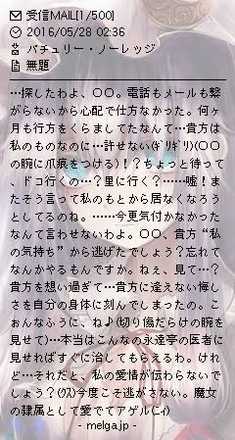 受信MAIL[1/500]
2016/05/28 02:36
パチュリー・ノーレッジ
無題
…探したわよ、〇〇。電話もメールも繋
がらないから心配で仕方なかった。何ヶ
月も行方をくらましてたなんて…貴方は
私のものなのに…許せない(ギリギリ)(〇〇
の腕に爪痕をつける)！？ちょっと待って
、ドコ行くの…？里に行く？……嘘！ま
たそう言って私のもとから居なくなろう
としてるのね。……今更気付かなかった
なんて言わせないわよ。〇〇、貴方“私
の気持ち”から逃げたでしょう？忘れて
なんかやるもんですか。ねぇ、見て…？
貴方を想い過ぎて…貴方に逢えない悔し
さを自分の身体に刻んでしまったの。こ
おんなふうに、ね♪(切り傷だらけの腕を
見せて)…本当はこんなの永遠亭の医者に
見せればすぐに治してもらえるわ。けれ
ど…それだと、私の愛情が伝わらないで
しょう？(クス)今度こそ逃がさない。魔女
の隷属として愛でてアゲル(ニィ)
- melga.jp -